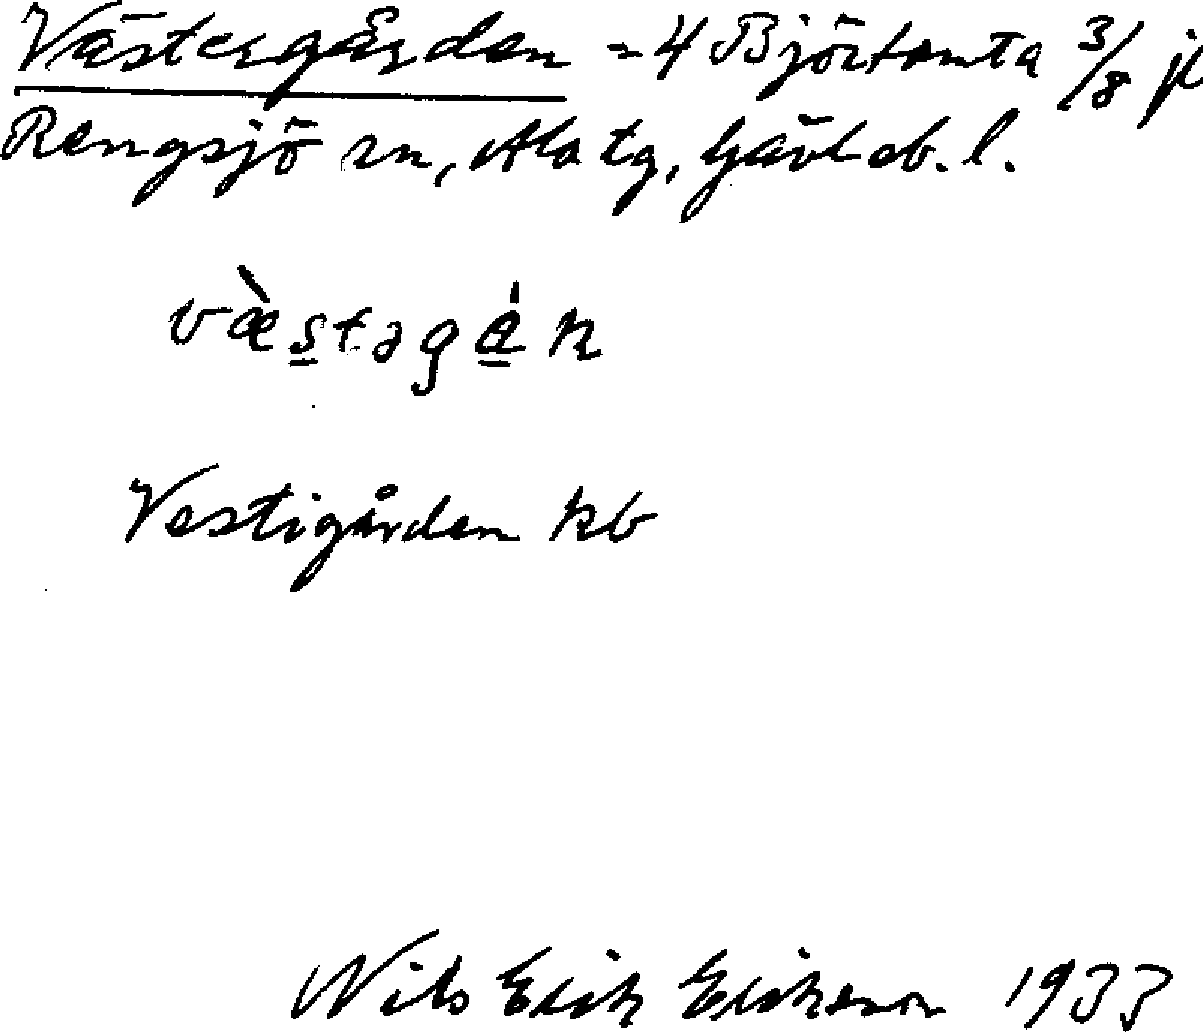 Västergården = 4 Björtomta 3/8 jl
Rengsjö sn, Ala tg, Gävleb. l.
væ̀stəgɑ́n
Vestigården kb
Nils Erik Erikson 1933